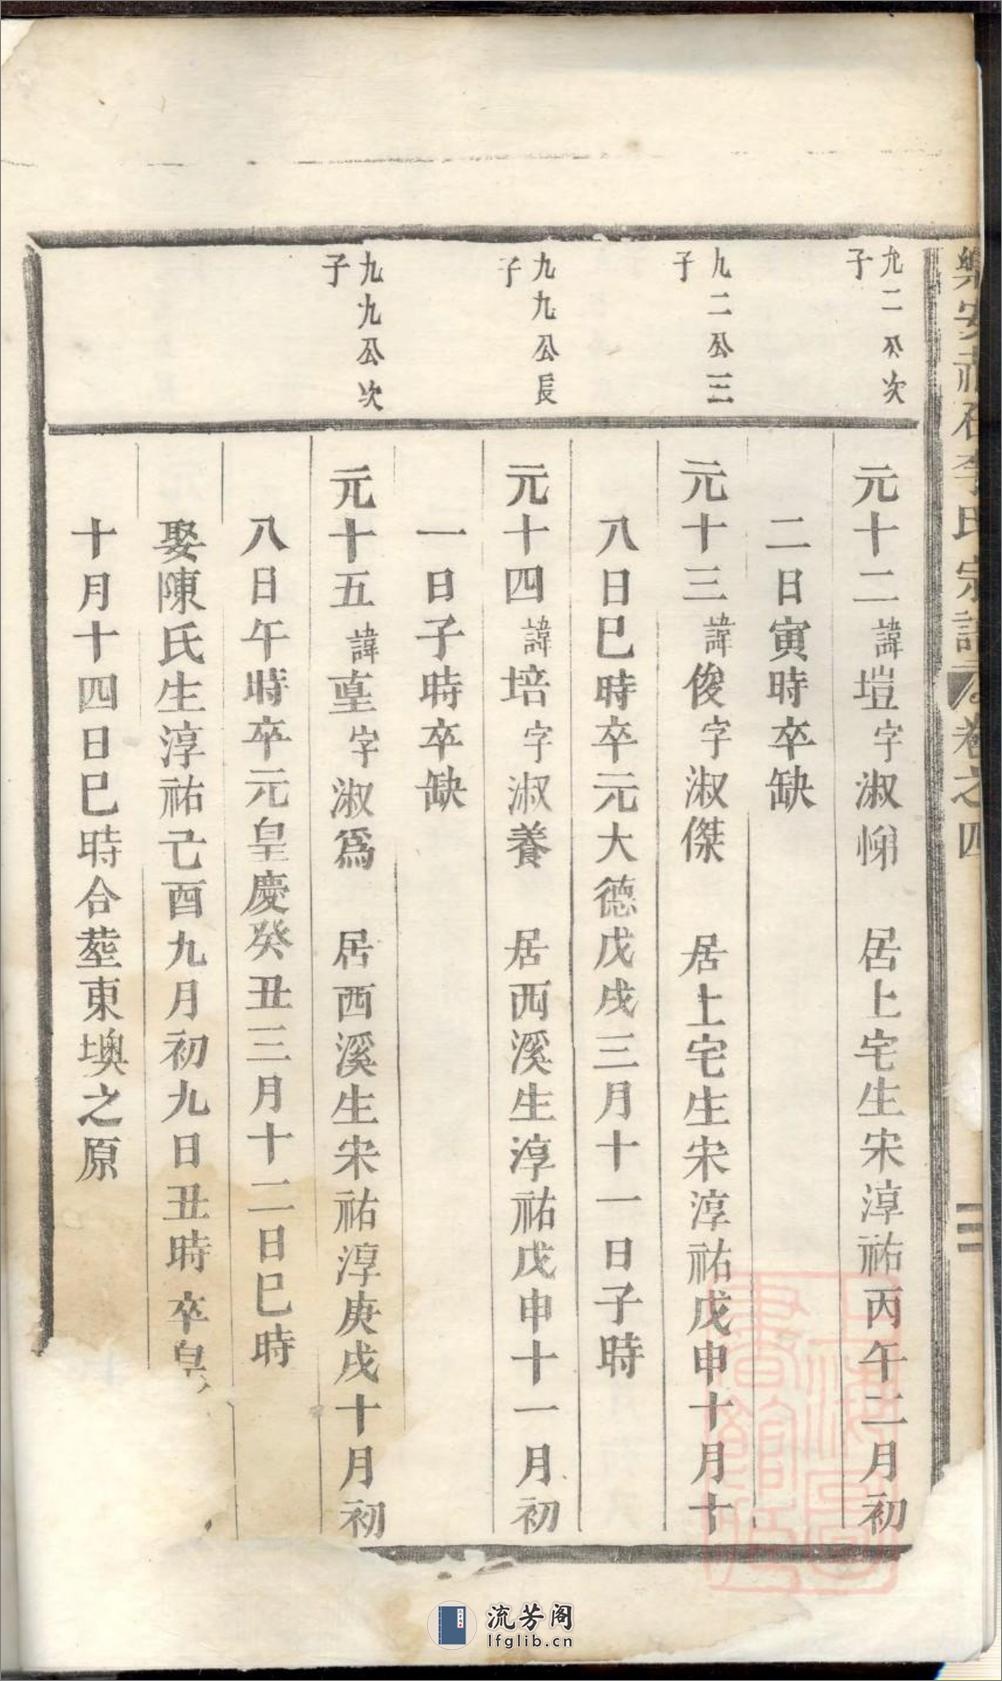 樂安赤石李氏宗譜 卷之四 三
九二公次子
元十二諱塏字淑悌 居上宅生宋淳祐丙午二月初
二日寅時卒缺
九二公三子
元十三諱俊字淑傑 居上宅生宋淳祐戊申十月十
八日巳時卒元大德戊戌三月十一日子時
九九公長子
元十四諱培字淑養 居西溪生淳祐戊申十一月初
一日子時卒缺
九九公次子
元十五諱亶字淑爲 居西溪生宋祐淳庚戌十月初
八日午時卒元皇慶癸丑三月十二日巳時
娶陳氏生淳祐己酉九月初九日丑時卒皇
十月十四日巳時合塟東墺之原
上海圖書館藏
流芳阁
lfglib.cn